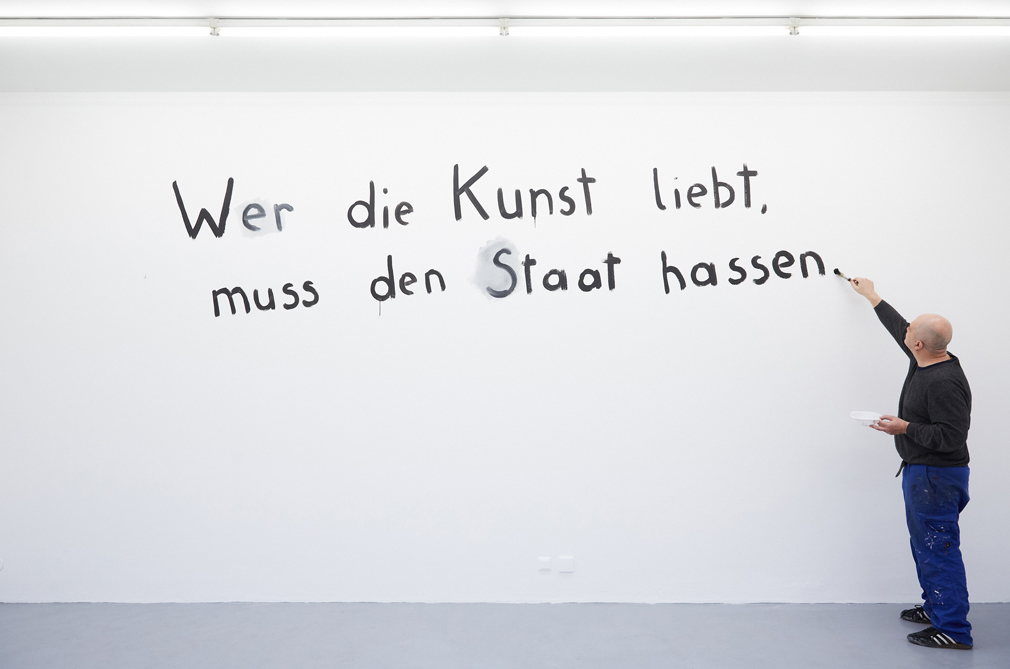 Wer die Kunst liebt,
muss den Staat hassen.